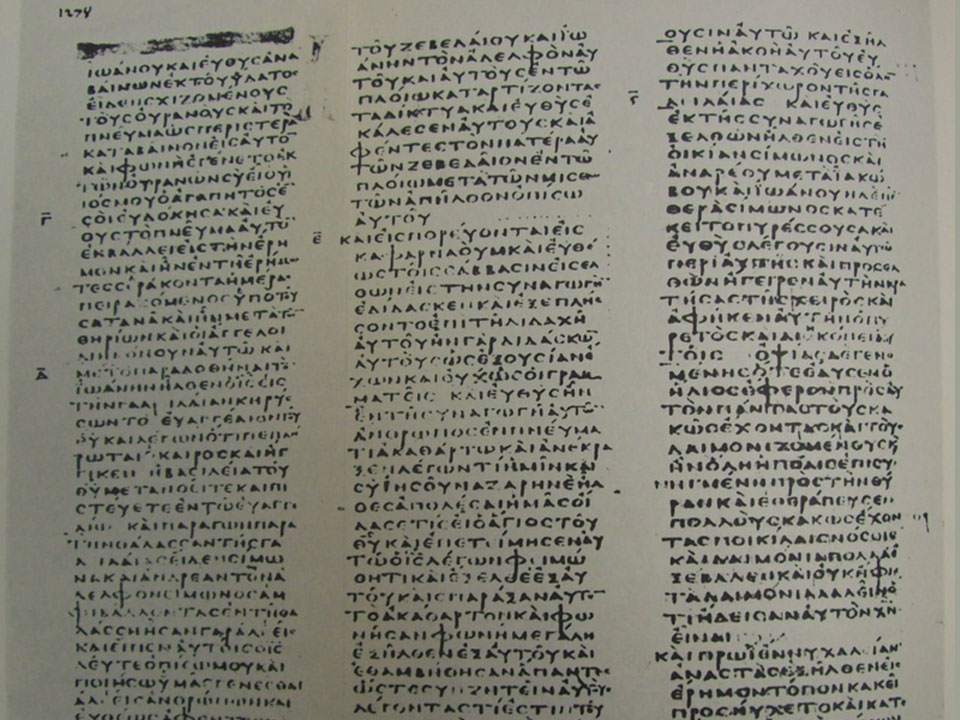 1278
ΙΩΑΝΟΥΚΑΙΕΥΘΥϹΑΝΑ
ΒΑΙΝΩΝΕΚΤΟΥΥΔΑΤΟϹ
ΕΙΔΕΝϹΧΙΖΟΜΕΝΟΥϹ
ΤΟΥϹΟΥΡΑΝΟΥϹΚΑΙΤΟ
ΠΝΕΥΜΑΩϹΠΕΡΙϹΤΕΡΑ
ΚΑΤΑΒΑΙΝΟΝΕΙϹΑΥΤΟ
ΚΑΙΦΩΝΗΕΓΕΝΕΤΟΕΚ
ΤΩΝΟΥΡΑΝΩΝϹΥΕΙΟΥΙ
ΟϹΜΟΥΟΑΓΑΠΗΤΟϹΕ
Γ ϹΟΙΕΥΔΟΚΗϹΑΚΑΙΕΥ
ΘΥϹΤΟΠΝΕΥΜΑΑΥΤΟ
ΕΚΒΑΛΛΕΙΕΙϹΤΗΝΕΡΗ
ΜΟΝΚΑΙΗΝΕΝΤΗΕΡΗΜΩ
ΤΕϹϹΕΡΑΚΟΝΤΑΗΜΕΡΑ
ΠΕΙΡΑΖΟΜΕΝΟϹΥΠΟΤΟΥ
ϹΑΤΑΝΑΚΑΙΗΝΜΕΤΑΤ
ΘΗΡΙΩΝΚΑΙΟΙΑΓΓΕΛΟΙ
ΔΙΗΚΟΝΟΥΝΑΥΤΩΚΑΙ
Δ ΜΕΤΑΤΟΠΑΡΑΔΟΘΗΝΑΙΤ
ΙΩΑΝΗΝΗΛΘΕΝΟΙϹΕΙϹ
ΤΗΝΓΑΛΙΛΑΙΑΝΚΗΡΥϹ
ϹΩΝΤΟΕΥΑΓΓΕΛΙΟΝΤΟΥ
ΘΥΚΑΙΛΕΓΩΝΟΤΙΠΕΠΛΗ
ΡΩΤΑΙΟΚΑΙΡΟϹΚΑΙΗΓ
ΓΙΚΕΝΗΒΑϹΙΛΕΙΑΤΟΥ
ΘΥΜΕΤΑΝΟΕΙΤΕΚΑΙΠΙ
ϹΤΕΥΕΤΕΕΝΤΩΕΥΑΓΓΕ
ΛΙΩΚΑΙΠΑΡΑΓΩΝΠΑΡΑ
ΤΗΝΘΑΛΑϹϹΑΝΤΗϹΓΑ
ΛΙΛΑΙΑϹΕΙΔΕΝϹΙΜΩ
ΝΑΚΑΙΑΝΔΡΕΑΝΤΟΝΑ
ΔΕΛΦΟΝϹΙΜΩΝΟϹΑΜ
ΦΙΒΑΛΛΟΝΤΑϹΕΝΤΗΘΑ
ΛΑϹϹΗΗϹΑΝΓΑΡΑΛΕΕΙ
ΚΑΙΕΙΠΕΝΑΥΤΟΙϹΟΙϹ
ΔΕΥΤΕΟΠΙϹΩΜΟΥΚΑΙ
ΠΟΙΗϹΩΥΜΑϹΓΕΝΕϹΘΑΙ
ΑΛΕΕΙϹΑΝΘΡΩΠΩΝΚΑΙ
ΤΟΥΖΕΒΕΔΑΙΟΥΚΑΙΙΩ
ΑΝΗΝΤΟΝΑΔΕΛΦΟΝΑΥ
ΤΟΥΚΑΙΑΥΤΟΥϹΕΝΤΩ
ΠΛΟΙΩΚΑΤΑΡΤΙΖΟΝΤΑ
ΤΑΔΙΚΤΥΑΚΑΙΕΥΘΥϹΕ
ΚΑΛΕϹΕΝΑΥΤΟΥϹΚΑΙΑ
ΦΕΝΤΕϹΤΟΝΠΑΤΕΡΑΑΥ
ΤΩΝΖΕΒΕΔΑΙΟΝΕΝΤΩ
ΠΛΟΙΩΜΕΤΑΤΩΝΜΙϹΘ
ΤΩΝΑΠΗΛΘΟΝΟΠΙϹΩ
ΑΥΤΟΥ
Ε ΚΑΙΕΙϹΠΟΡΕΥΟΝΤΑΙΕΙϹ
ΚΑΦΑΡΝΑΟΥΜΚΑΙΕΥΘΥ
ΩϹΤΟΙϹϹΑΒΒΑϹΙΝΕΙϹΕΛ
ΘΩΝΕΙϹΤΗΝϹΥΝΑΓΩΓΗ
ΕΔΙΔΑϹΚΕΝΚΑΙΕΞΕΠΛΗϹ
ϹΟΝΤΟΕΠΙΤΗΔΙΔΑΧΗ
ΑΥΤΟΥΗΝΓΑΡΔΙΔΑϹΚΩ
ΑΥΤΟΥϹΩϹΕΞΟΥϹΙΑΝΕ
ΧΩΝΚΑΙΟΥΧΩϹΟΙΓΡΑΜ
ΜΑΤΕΙϹΚΑΙΕΥΘΥϹΗΝ
ΕΝΤΗϹΥΝΑΓΩΓΗΑΥΤΩ
ΑΝΘΡΩΠΟϹΕΝΠΝΕΥΜΑ
ΤΙΑΚΑΘΑΡΤΩΚΑΙΑΝΕΚΡΑ
ΞΕΝΛΕΓΩΝΤΙΗΜΙΝΚΑΙ
ϹΥΙΗϹΟΥΝΑΖΑΡΗΝΕΗΛ
ΘΕϹΑΠΟΛΕϹΑΙΗΜΑϹΟΙ
ΔΑϹΕΤΙϹΕΙΟΑΓΙΟϹΤΟΥ
ΘΥΚΑΙΕΠΕΤΕΙΜΗϹΕΝΑΥ
ΤΩΟΙϹΛΕΓΩΝΦΙΜΩ
ΘΗΤΙΚΑΙΕΞΕΛΘΕΕΞΑΥ
ΤΟΥΚΑΙϹΠΑΡΑΞΑΝΑΥΤ
ΤΟΑΚΑΘΑΡΤΟΝΚΑΙΦΩ
ΝΗϹΑΝΦΩΝΗΜΕΓΑΛΗ
ΕΞΗΛΘΕΝΕΞΑΥΤΟΥΚΑΙ
ΕΘΑΜΒΗΘΗϹΑΝΑΠΑΝΤ
ΩϹΤΕϹΥΝΖΗΤΕΙΝΑΥΤΟΥ
ΛΕΓΟΝΤΑϹΤΙΕϹΤΙΝΤΟΥ
ΟΥϹΙΝΑΥΤΩΚΑΙΕΞΗΛ
ΘΕΝΗΑΚΟΗΑΥΤΟΥΕΥ
ΘΥϹΠΑΝΤΑΧΟΥΕΙϹΟΛ
ΤΗΝΠΕΡΙΧΩΡΟΝΤΗϹΓΑ
Ϛ ΛΙΛΑΙΑϹΚΑΙΕΥΘΥϹ
ΕΚΤΗϹϹΥΝΑΓΩΓΗϹΕ
ΞΕΛΘΩΝΗΛΘΕΝΕΙϹΤΗ
ΟΙΚΙΑΝϹΙΜΩΝΟϹΚΑΙ
ΑΝΔΡΕΟΥΜΕΤΑΙΑΚΩ
ΒΟΥΚΑΙΙΩΑΝΟΥΗΔΕΠΕ
ΘΕΡΑϹΙΜΩΝΟϹΚΑΤΕ
ΚΕΙΤΟΠΥΡΕϹϹΟΥϹΑΚΑΙ
ΕΥΘΥϹΛΕΓΟΥϹΙΝΑΥΤΩ
ΠΕΡΙΑΥΤΗϹΚΑΙΠΡΟϹΕΛ
ΘΩΝΗΓΕΙΡΕΝΑΥΤΗΝΚΡΑ
ΤΗϹΑϹΤΗϹΧΕΙΡΟϹΚΑΙ
ΑΦΗΚΕΝΑΥΤΗΝΟΠΥ
ΡΕΤΟϹΚΑΙΔΙΗΚΟΝΕΙΑΥ
ΤΟΙϹΟΨΙΑϹΔΕΓΕΝΟ
ΜΕΝΗϹΟΤΕΕΔΥϹΕΝΟ
ΗΛΙΟϹΕΦΕΡΟΝΠΡΟϹΑΥ
ΤΟΝΠΑΝΤΑϹΤΟΥϹΚΑ
ΚΩϹΕΧΟΝΤΑϹΚΑΙΤΟΥ
ΔΑΙΜΟΝΙΖΟΜΕΝΟΥϹΚ
ΗΝΟΛΗΗΠΟΛΙϹΕΠΙϹΥ
ΝΗΓΜΕΝΗΠΡΟϹΤΗΝΘΥ
ΡΑΝΚΑΙΕΘΕΡΑΠΕΥϹΕΝ
ΠΟΛΛΟΥϹΚΑΚΩϹΕΧΟΝ
ΤΑϹΠΟΙΚΙΛΑΙϹΝΟϹΟΙϹ
ΚΑΙΔΑΙΜΟΝΙΑΠΟΛΛΑ
ΕΞΕΒΑΛΕΝΚΑΙΟΥΚΗΦΙ
ΤΑΔΑΙΜΟΝΙΑΛΑΛΕΙΝΟ
ΤΙΗΔΕΙϹΑΝΑΥΤΟΝΧΝ
ΕΙΝΑΙ
ΚΑΙΠΡΩΙΕΝΝΥΧΑΛΙΑΝ
ΑΝΑϹΤΑϹΕΞΗΛΘΕΝΕΙϹ
ΕΡΗΜΟΝΤΟΠΟΝΚΑΚΕΙ
ΠΡΟϹΗΥΧΕΤΟΚΑΙΚΑΤ